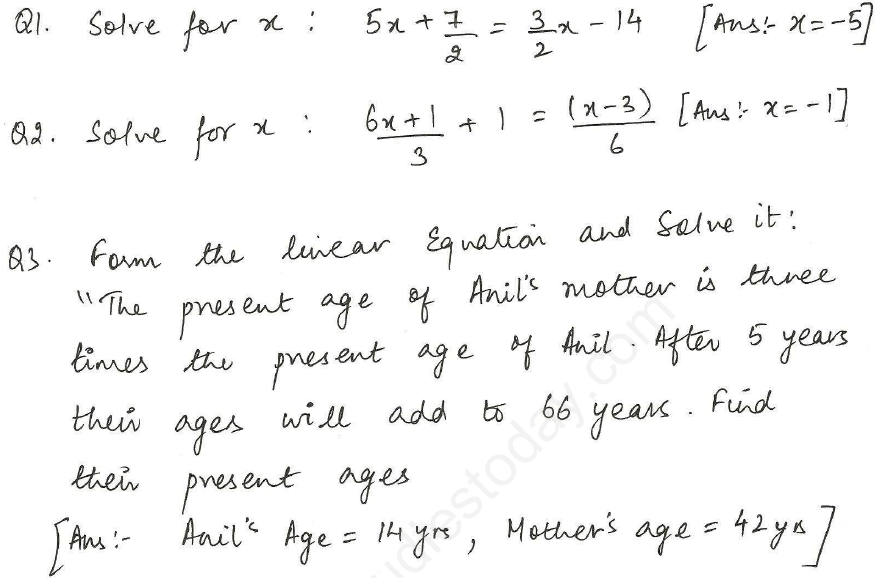 Q1. Solve for x : 5x + 7/2 = 3/2 x - 14 [Ans:- x = -5]
Q2. Solve for x : (6x + 1)/3 + 1 = (x - 3)/6 [Ans:- x = -1]
Q3. Form the linear Equation and Solve it:
"The present age of Anil's mother is three
times the present age of Anil. After 5 years
their ages will add to 66 years. Find
their present ages
[Ans:- Anil's Age = 14 yrs, Mother's age = 42 yrs]
udiestoday.com